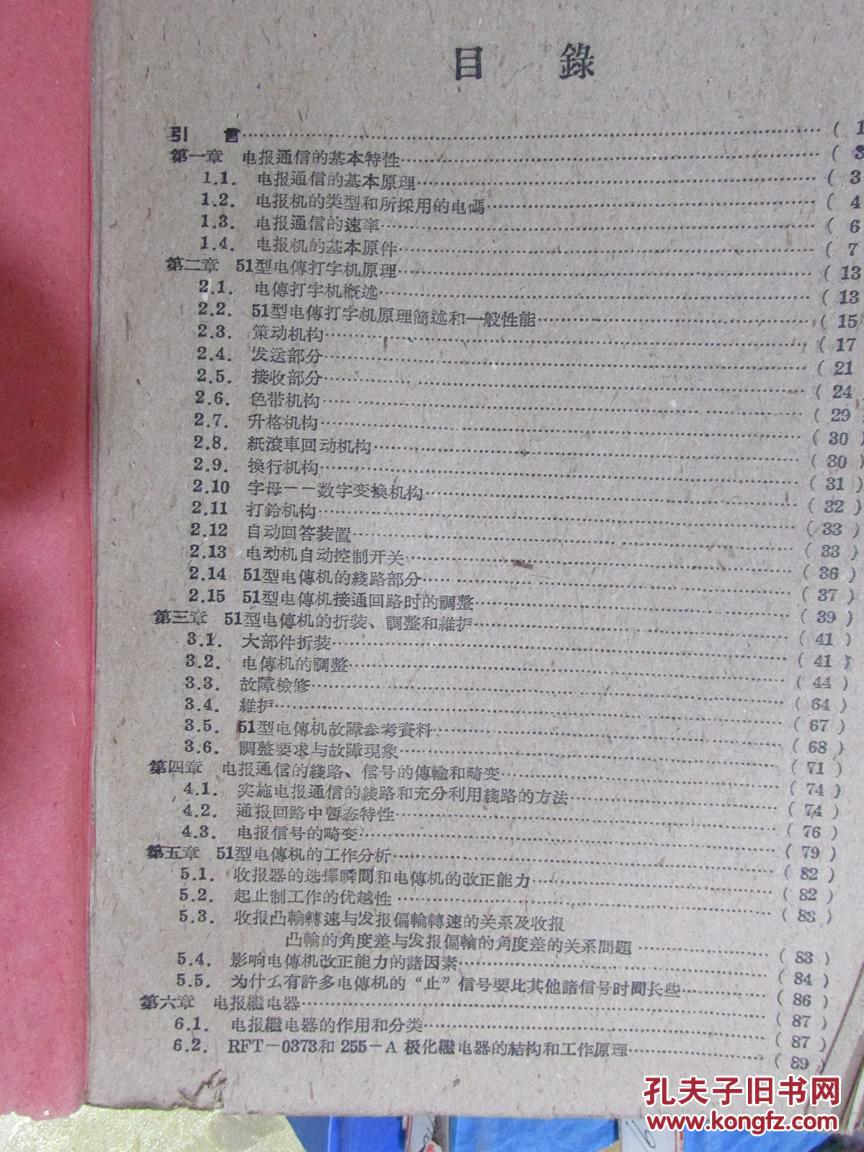 目 錄
引 言……( 1
第一章 电报通信的基本特性……( 3
1.1. 电报通信的基本原理……( 3
1.2. 电报机的类型和所採用的电碼……( 4
1.3. 电报通信的速率……( 6
1.4. 电报机的基本原件……( 7
第二章 51型电傳打字机原理……( 13
2.1. 电傳打字机概述……( 13
2.2. 51型电傳打字机原理簡述和一般性能……( 15
2.3. 策动机构……( 17
2.4. 发送部分……( 21
2.5. 接收部分……( 24
2.6. 色带机构……( 29
2.7. 升格机构……( 30 )
2.8. 紙滾車回动机构……( 30
2.9. 換行机构……( 31 )
2.10 字母——数字变換机构……( 32 )
2.11 打鈴机构……( 33 )
2.12 自动回答装置……( 33 )
2.13 电动机自动控制开关……( 36 )
2.14 51型电傳机的綫路部分……( 37 )
2.15 51型电傳机接通回路时的調整……( 39 )
第三章 51型电傳机的折装、調整和維护……( 41 )
3.1. 大部件折装……( 41 )
3.2. 电傳机的調整……( 44 )
3.3. 故障檢修……( 64 )
3.4. 維护……( 67 )
3.5. 51型电傳机故障参考資料……( 68 )
3.6. 調整要求与故障現象……( 71 )
第四章 电报通信的綫路、信号的傳輸和畸变……( 74 )
4.1. 实施电报通信的綫路和充分利用綫路的方法……( 74 )
4.2. 通报回路中暫态特性……( 76 )
4.3. 电报信号的畸变……( 79 )
第五章 51型电傳机的工作分析……( 82 )
5.1. 收报器的选擇瞬間和电傳机的改正能力……( 82 )
5.2. 起止制工作的优越性……( 83 )
5.3. 收报凸輪轉速与发报偏輪轉速的关系及收报
凸輪的角度差与发报偏輪的角度差的关系問題……( 83 )
5.4. 影响电傳机改正能力的諸因素……( 84 )
5.5. 为什么有許多电傳机的“止”信号要比其他諸信号时間长些……( 86 )
第六章 电报繼电器……( 87 )
6.1. 电报繼电器的作用和分类……( 87 )
6.2. RFT-0373和255-A极化繼电器的結构和工作原理……( 89 )
孔夫子旧书网
www.kongfz.com